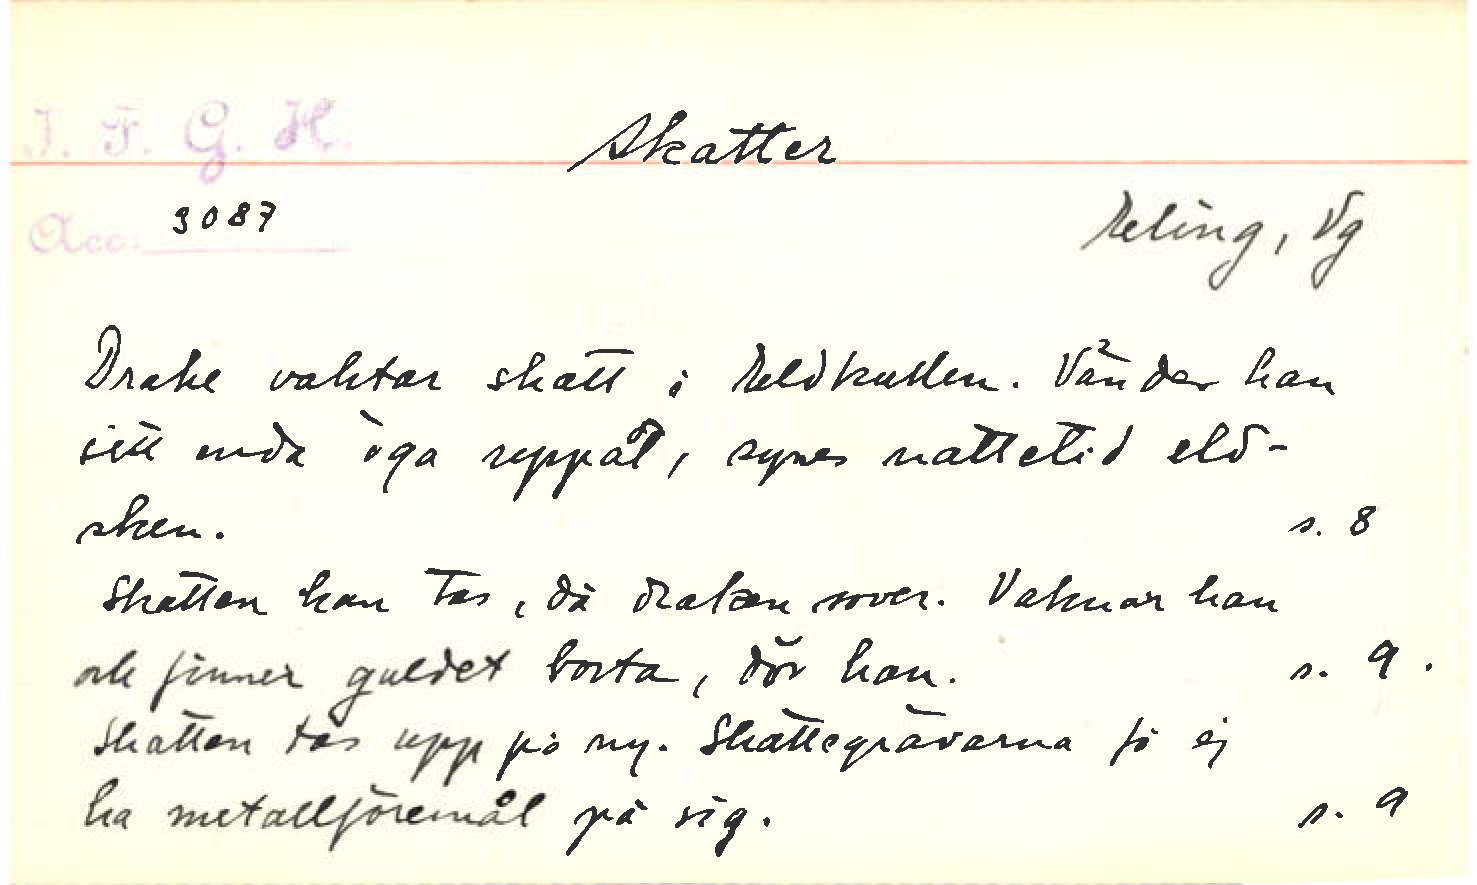 I. F. G. H.
Skatter
Acc: 3087
Reling, Vg
Drake vaktar skatt i . Vänder han
sitt enda öga uppåt, synes nattetid eld-
sken. s. 8
Skatten kan tas, då draken sover. Vaknar han
och finner guldet borta, dör han. s. 9.
Skatten tas upp på ny. Skattegrävarna få ej
ha metallföremål på sig. s. 9